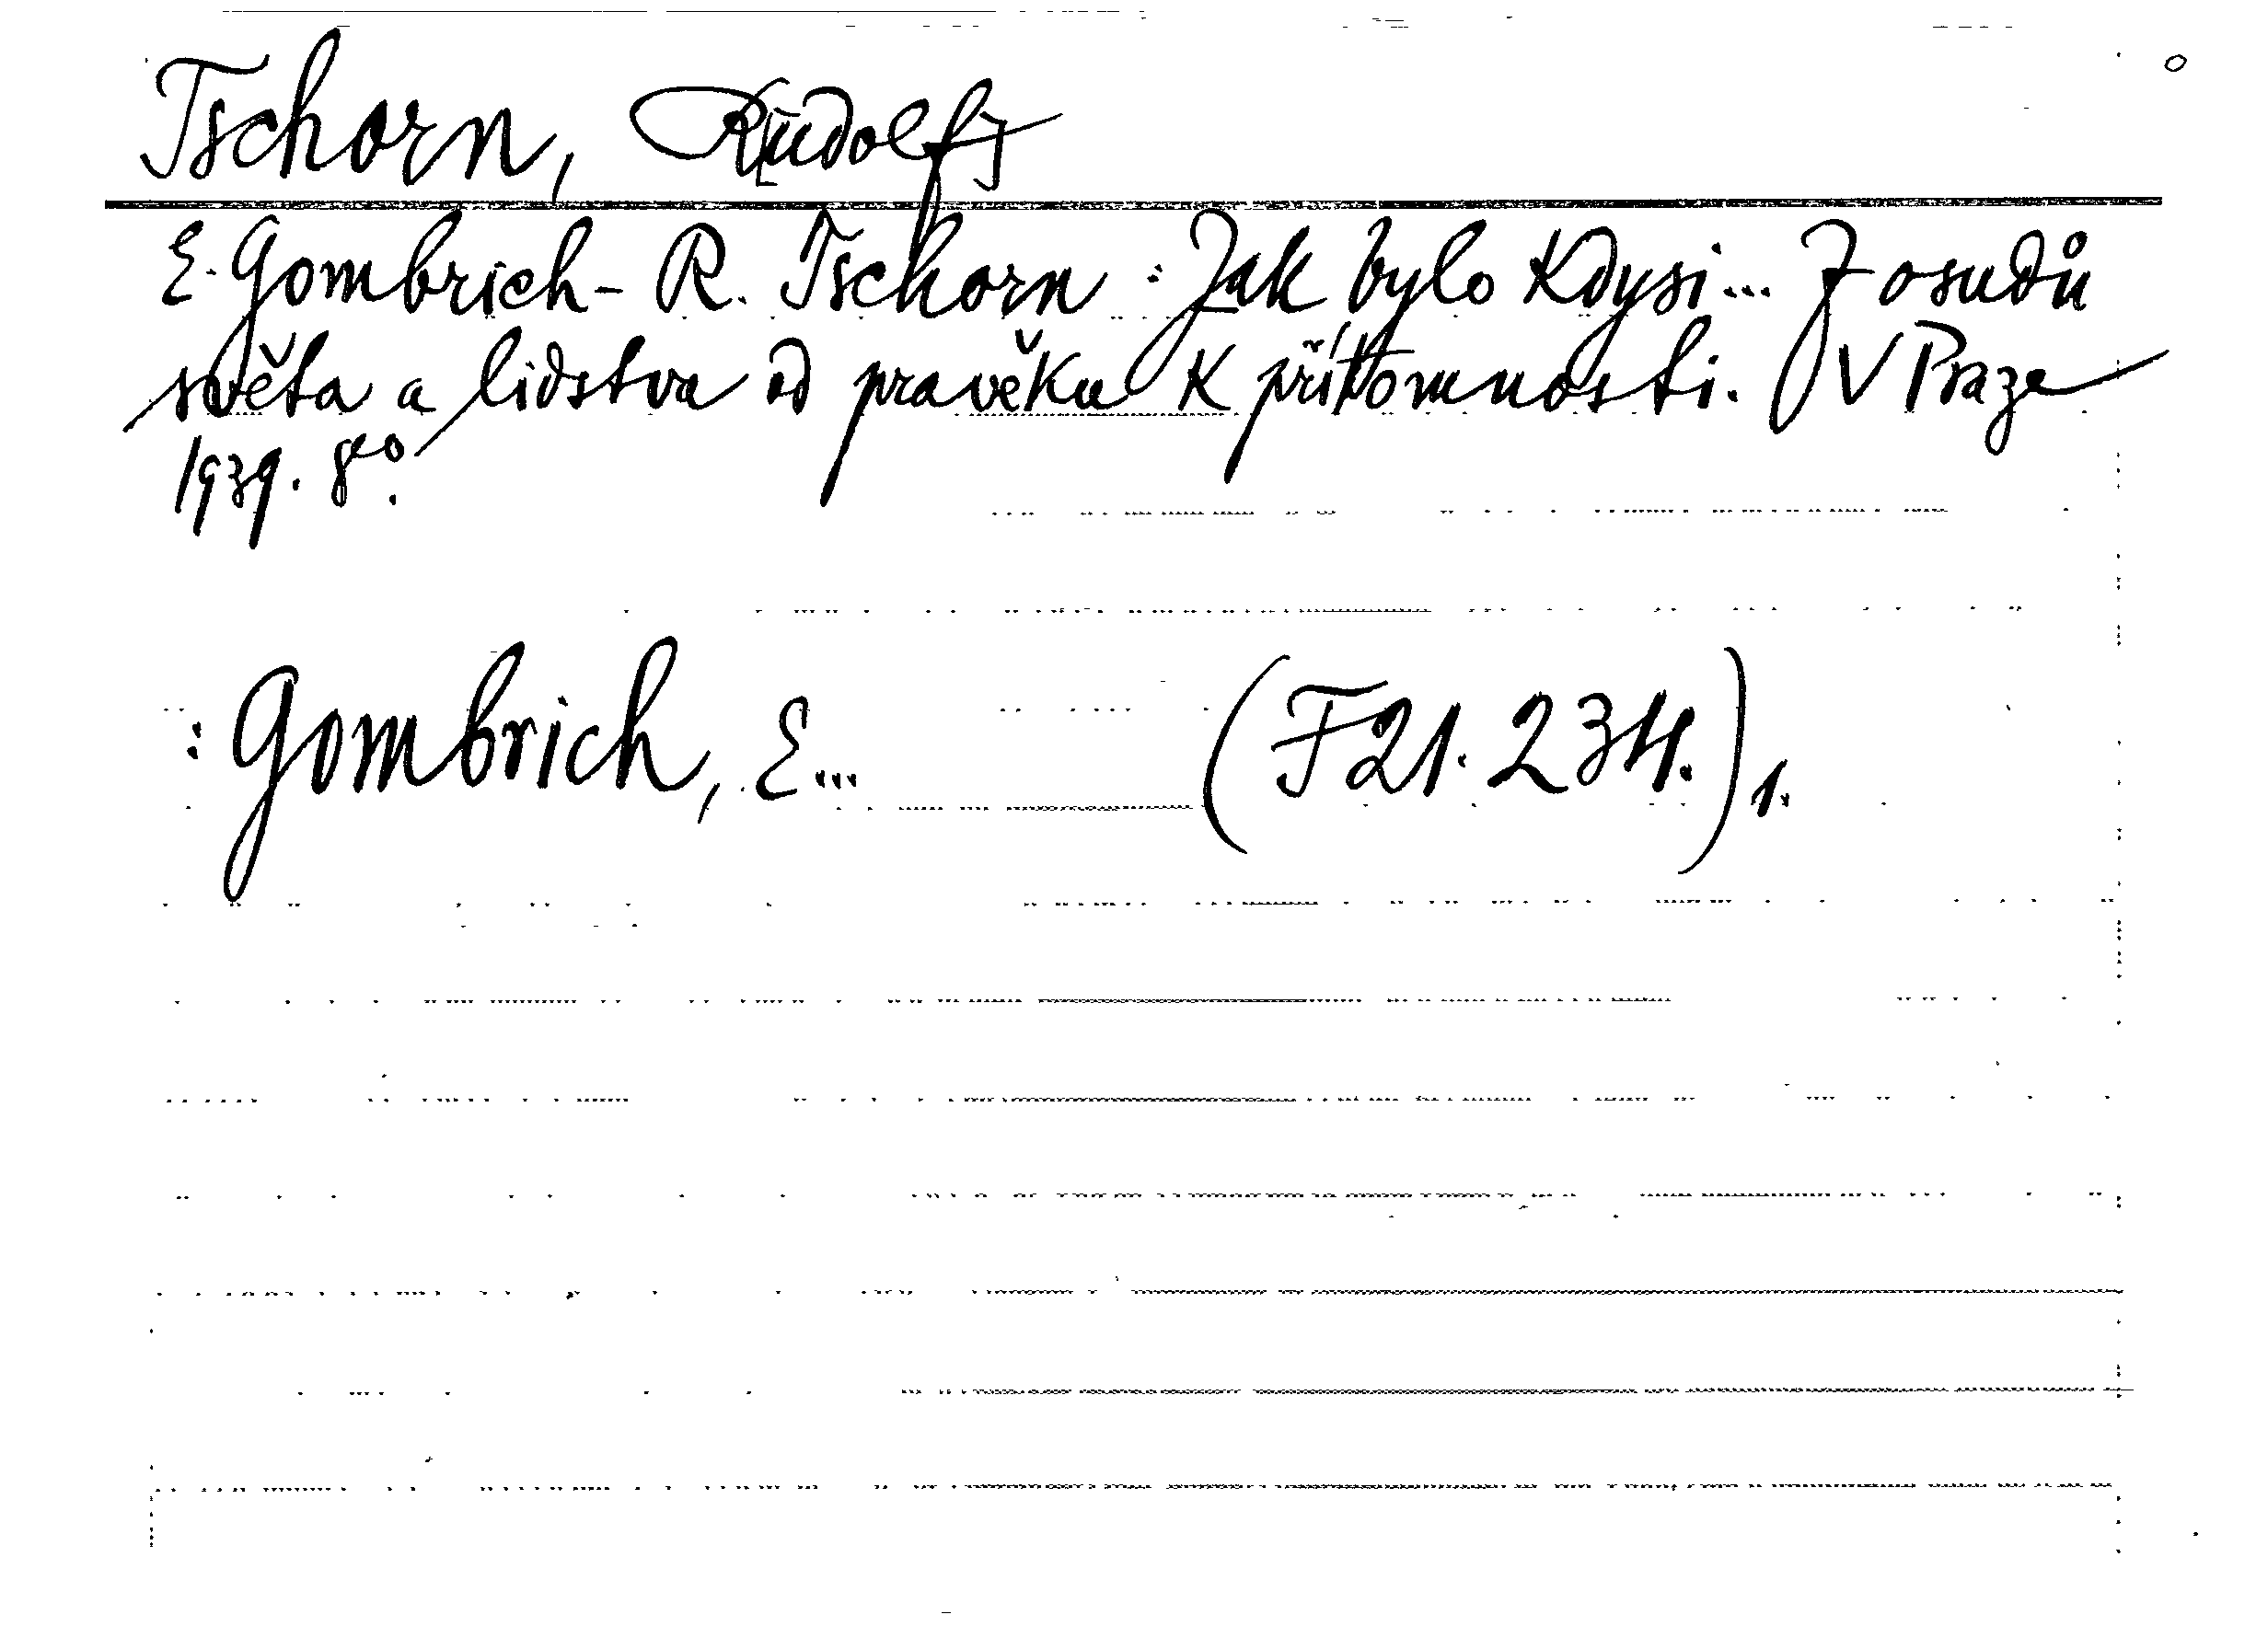 Tschorn, R[udolf]
E. Gombrich - R. Tschorn : Jak bylo kdysi... Z osudů
světa a lidstva od pravěku k přítomnosti. V Praze
1939. 8°.
: Gombrich, E... (F 21.234.) 1.